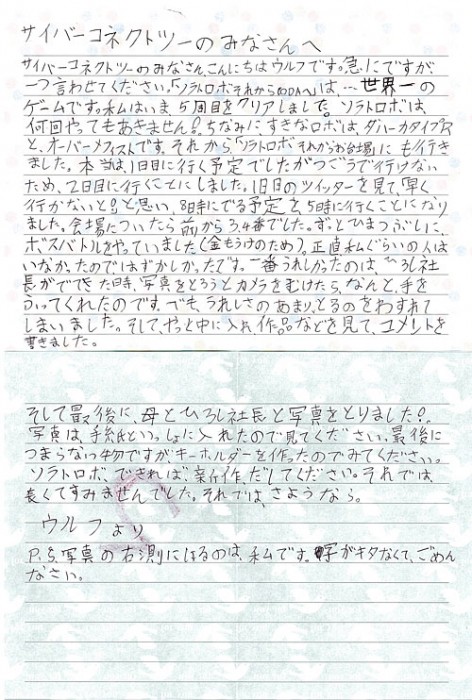 サイバーコネクトツーのみなさんへ
サイバーコネクトツーのみなさん、こんにちはウルフです。急にですが、
一つ言わせてください。「ソラトロボ それからCODAへ」は、…世界一の
ゲームです。私はいま5周目をクリアしました。ソラトロボは、
何回やってもあきません!ちなみに、すきなロボは、ダハーカタイプR
と、オーバーメフィストです。それから「ソラトロボ それからお台場へ」にも行き
ました。本当は、1日目に行く予定でしたがつごうで行けない
ため、2日目に行くことにしました。1日目のツイッターを見て、「早く
行かないと!」と思い、8時にでる予定を5時に行くことになり
ました。会場についたら前から3,4番でした。ずっとひまつぶしに、
ボスバトルをやっていました(金もうけのため)。正直私ぐらいの人は
いなかったのではずかしかったです。一番うれしかったのは、ひろし社
長がでてきた時、写真をとろうとカメラをむけたら、なんと、手を
ふってくれたのです。でも、うれしさのあまり、とるのをわすれて
しまいました。そして、やっと中に入れ作品などを見て、コメントを
書きました。
そして最後に、母とひろし社長と写真をとりました!
写真は、手紙といっしょに入れたので見てください。最後に
つまらない物ですがキーホルダーを作ったのでみてください。
ソラトロボ、できれば新作だしてください。それでは、
長くてすみませんでした。それでは、さようなら。
ウルフより
P.S.写真の右測にいるのは、私です。字がキタなくて、ごめん
なさい。